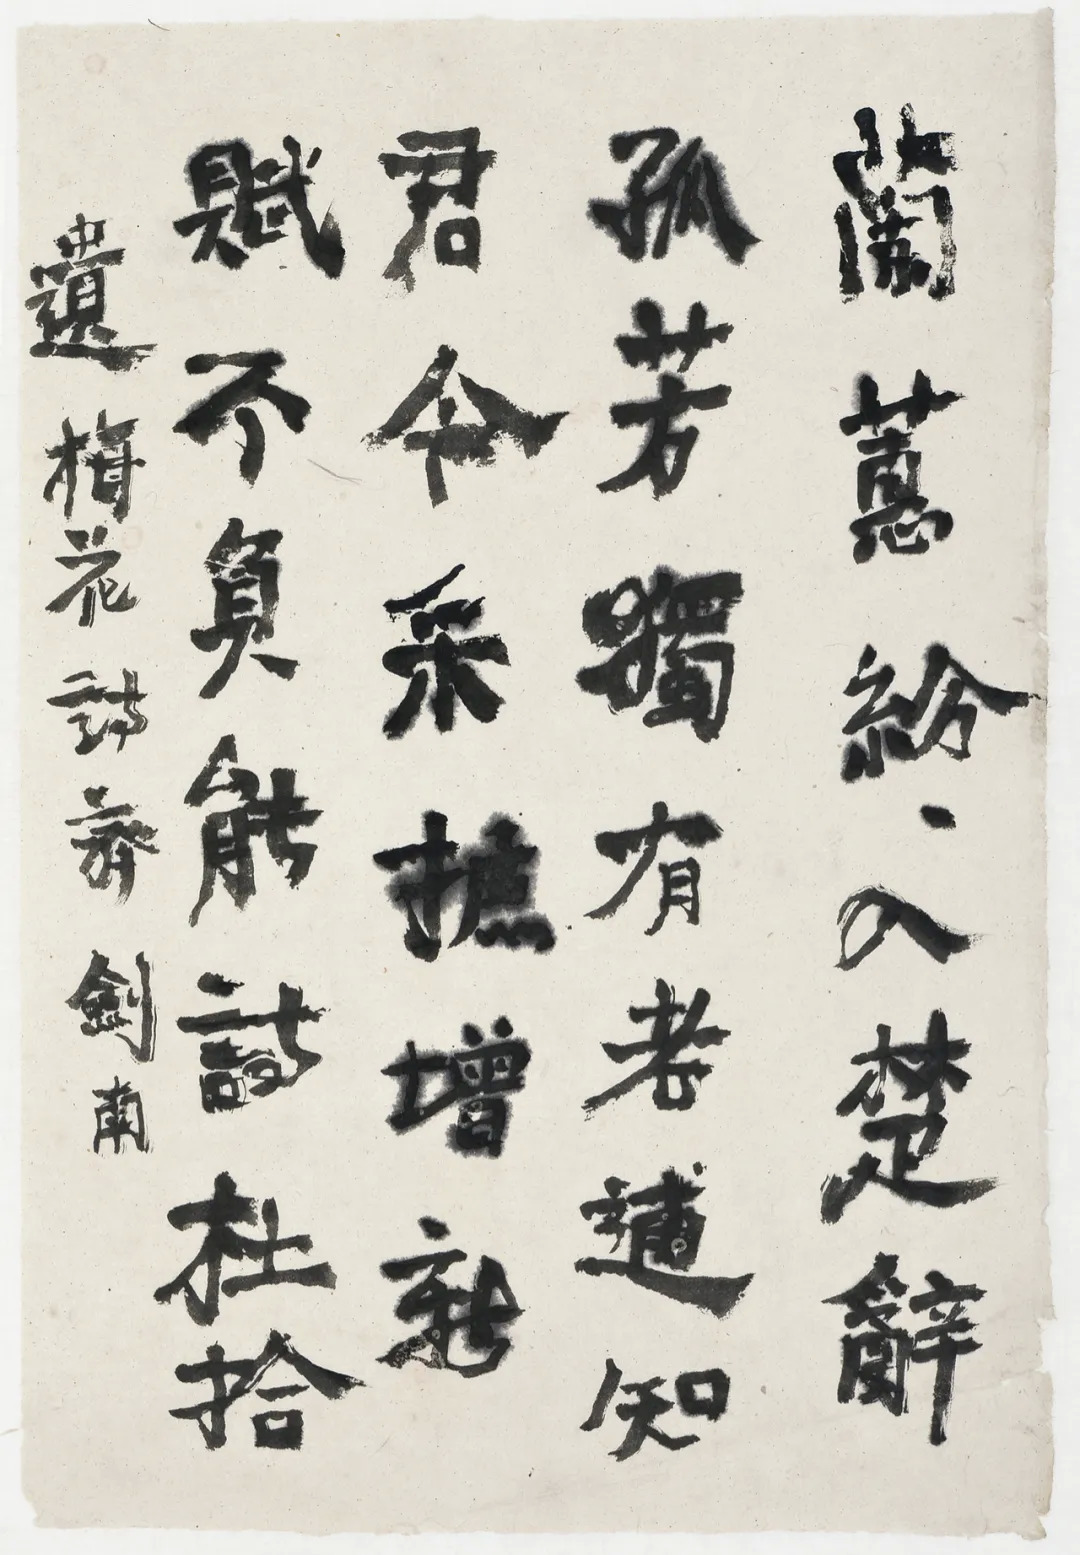 蘭蕙紛、入楚辭
孤芳獨有老逋知
君今采摭增新
賦不負能詩杜拾
遺 梅花詩 劍南